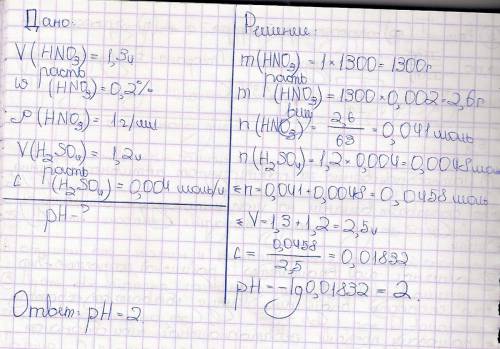 Дано:
V(HNO₃) = 1,3л
раств
ω (HNO₃) = 0,2%
ρ(HNO₃) = 1г/мл
V(H₂SO₄) = 1,2л
раств
с (H₂SO₄) = 0,004 моль/л
pH - ?
Ответ: pH = 2.
Решение:
m(HNO₃) = 1 × 1300 = 1300г
раств
m (HNO₃) = 1300 × 0,002 = 2,6г
вещ
n(HNO₃) = 2,6/63 = 0,041 моль
n(H₂SO₄) = 1,2 × 0,004 = 0,0048 моль
n = 0,041 + 0,0048 = 0,0458 моль
V = 1,3 + 1,2 = 2,5л
с = 0,0458/2,5 = 0,01832
pH = -lg0,01832 = 2.